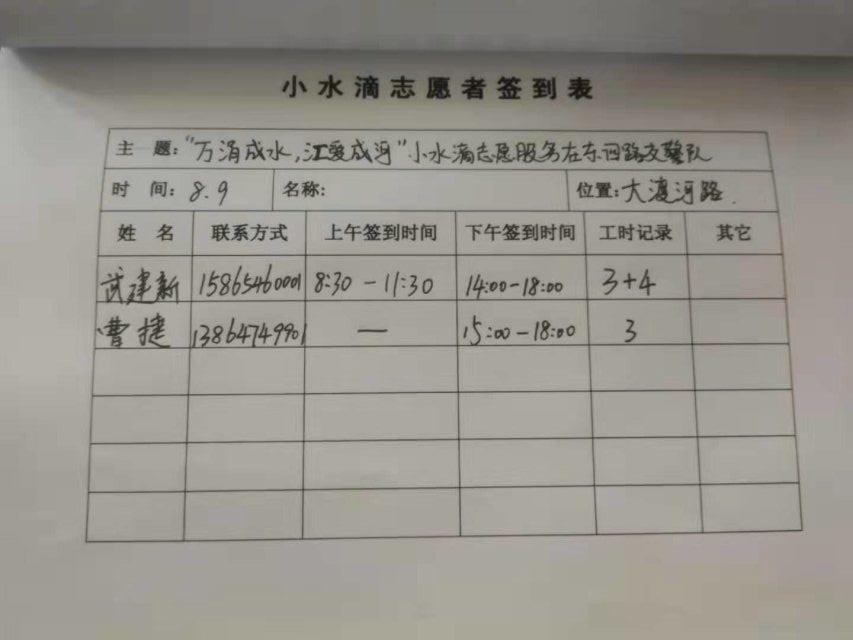 小水滴志愿者签到表
主 题：“万涓成水，江爱成河”小水滴志愿服务在东四路交警队
时 间：8.9 名称： 位置：大渡河路
姓 名 联系方式 上午签到时间 下午签到时间 工时记录 其它
武建新 15865460001 8:30－11:30 14:00－18:00 3+4
曹捷 13864749901 — 15:00－18:00 3